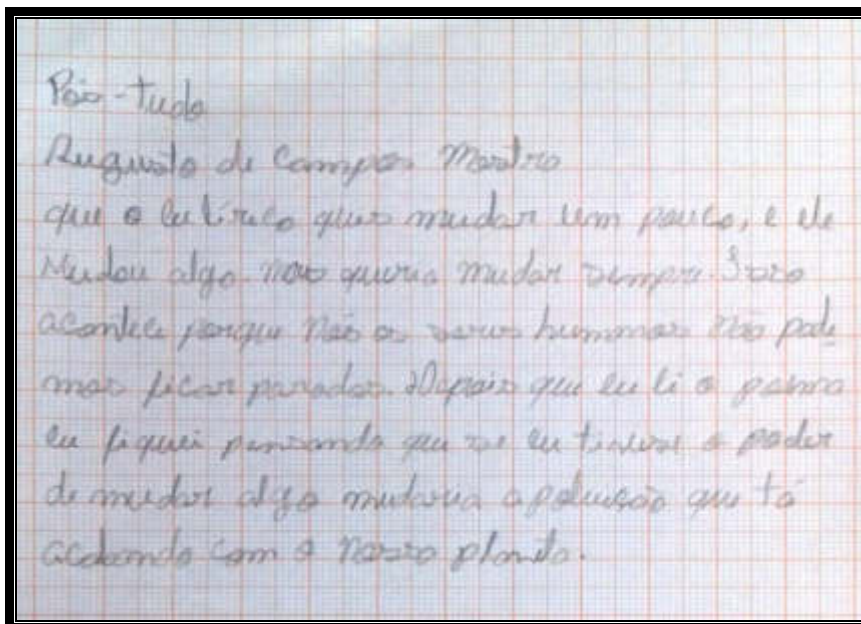 Pós-tudo
Augusto de Campos Mostro
que o eu lírico quis mudar um pouco, e ele
Mudou algo mas queria mudar sempre. Isso
acontece porque nós os seres hummanos não pode
mos ficar parados. Depois que eu li o poema
eu fiquei pensando que se eu tivesse o poder
de mudar algo mudaria a poluição que tá
acabando com o nosso planeta.